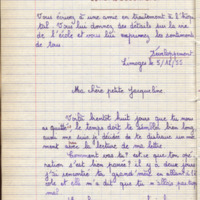 Vous écrivez à une amie en traitement à l'hôpi-
tal. Vous lui donnez des détails sur la vie
de l'école et vous lui exprimez les sentiments
de tous
Développement
Limoges le 5/11/55
Ma chère petite Jacqueline
Voilà bientôt huit jours que tu nous
as quittés le temps doit te sembler bien long
aussi me suis-je décidée de te distraire un mo-
ment avec la lecture de ma lettre
Comment vas-tu ? est-ce que ton opé-
ration s'est bien passée ? il y a deux jours
j'ai rencontré ta grand'mère en allant à l'é-
cole et elle m'a dit que tu n'allais pas trop
mal